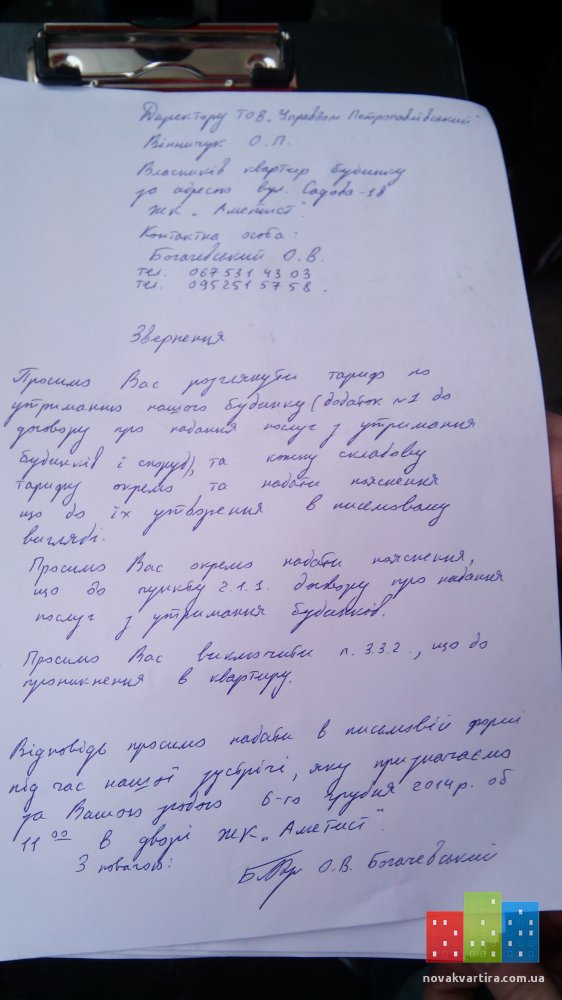 Директору ТОВ „Управдом Петропавлівський"
Вінничук О.П.
Власників квартир будинку
за адресою вул. Садова-18
ЖК „Аметист".
Контактна особа:
Богачевський О.В.
тел. 067 531 43 03
тел. 095 251 57 58.
Звернення
Просимо Вас розглянути тариф по
утриманню нашого будинку (додаток №1 до
договору про надання послуг з утримання
будинків і споруд), та кожну складову
тарифу окремо та надати пояснення
що до їх утворення в писемовому
вигляді.
Просимо Вас окремо надати пояснення,
що до пункту 2.1.1. договору про надання
послуг з утримання будинків.
Просимо Вас виключити п. 3.3.2., що до
проникнення в квартиру.
Відповідь просимо надати в письмовій формі
під час нашої зустрічі, яку призначаємо
за Вашою згодою 6-го грудня 2014р. об
11 00 в дворі ЖК „Аметист".
З повагою: О.В. Богачевський
novakvartira.com.ua